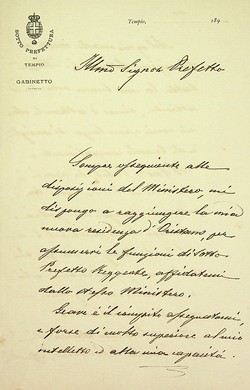 SOTTO PREFETTURA
DI
TEMPIO
GABINETTO
Tempio, 189
Illmo Signor Prefetto
Sempre ossequiente alle
disposizioni del Ministero, mi
dispongo a raggiungere la mia
nuova residenza d'Oristano, per
assumervi le funzioni di Sotto
Prefetto Reggente, affidatemi
dallo stesso Ministero.
Grave è il compito assegnatomi,
e forse di molto superiore al mio
intelletto ed alla mia capacità.